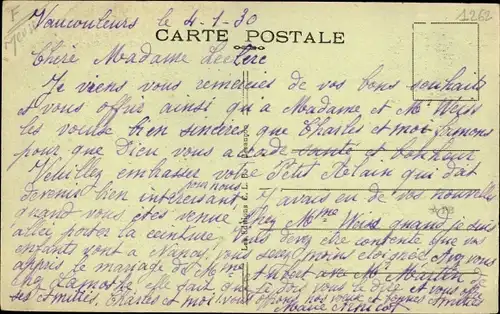 Vaucouleurs le 4-1-30
1262
CARTE POSTALE
Chère Madame Leclerc
Je viens vous remercier de vos bons souhaits
et vous offrir ainsi qu'a Madame et Mr Weiss
les voeux bien sincères que Charles et moi formons
pour que Dieu vous accorde santé et bonheur
Veuillez embrasser votre Petit Alain qui doit
devenir bien intéressant pour nous J'avais eu de vos nouvelles
quand vous êtes venue chez Mme Weiss quand je suis
allée porter la ceinture. Vous devez être contente que vos
enfants sont a Nancy, vous serez moins éloignée
appris le mariage de Mme avec Mr Martin
chez Lamothe elle fait
ses amitiés, Charles et moi vous offrons nos voeux et bonnes amitiés
Marie